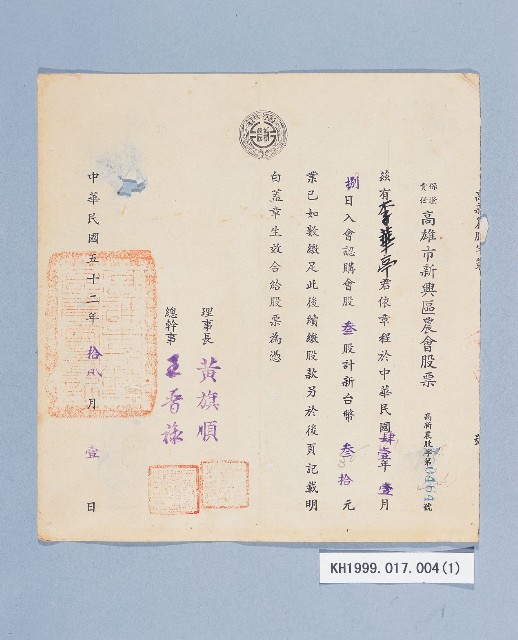 保證責任高雄市新興區農會股票
高新農股字第 號
茲有李華亭君依章程於中華民國肆壹年壹月
捌日入會認購會股叁股計新台幣叁拾元
業已如數繳足此後續繳股款另於後頁記載明
白蓋章生效合給股票為憑
理事長 黃旗順
總幹事 王晋祿
中華民國五十二年拾貳月壹日
KH1999.017.004(1)